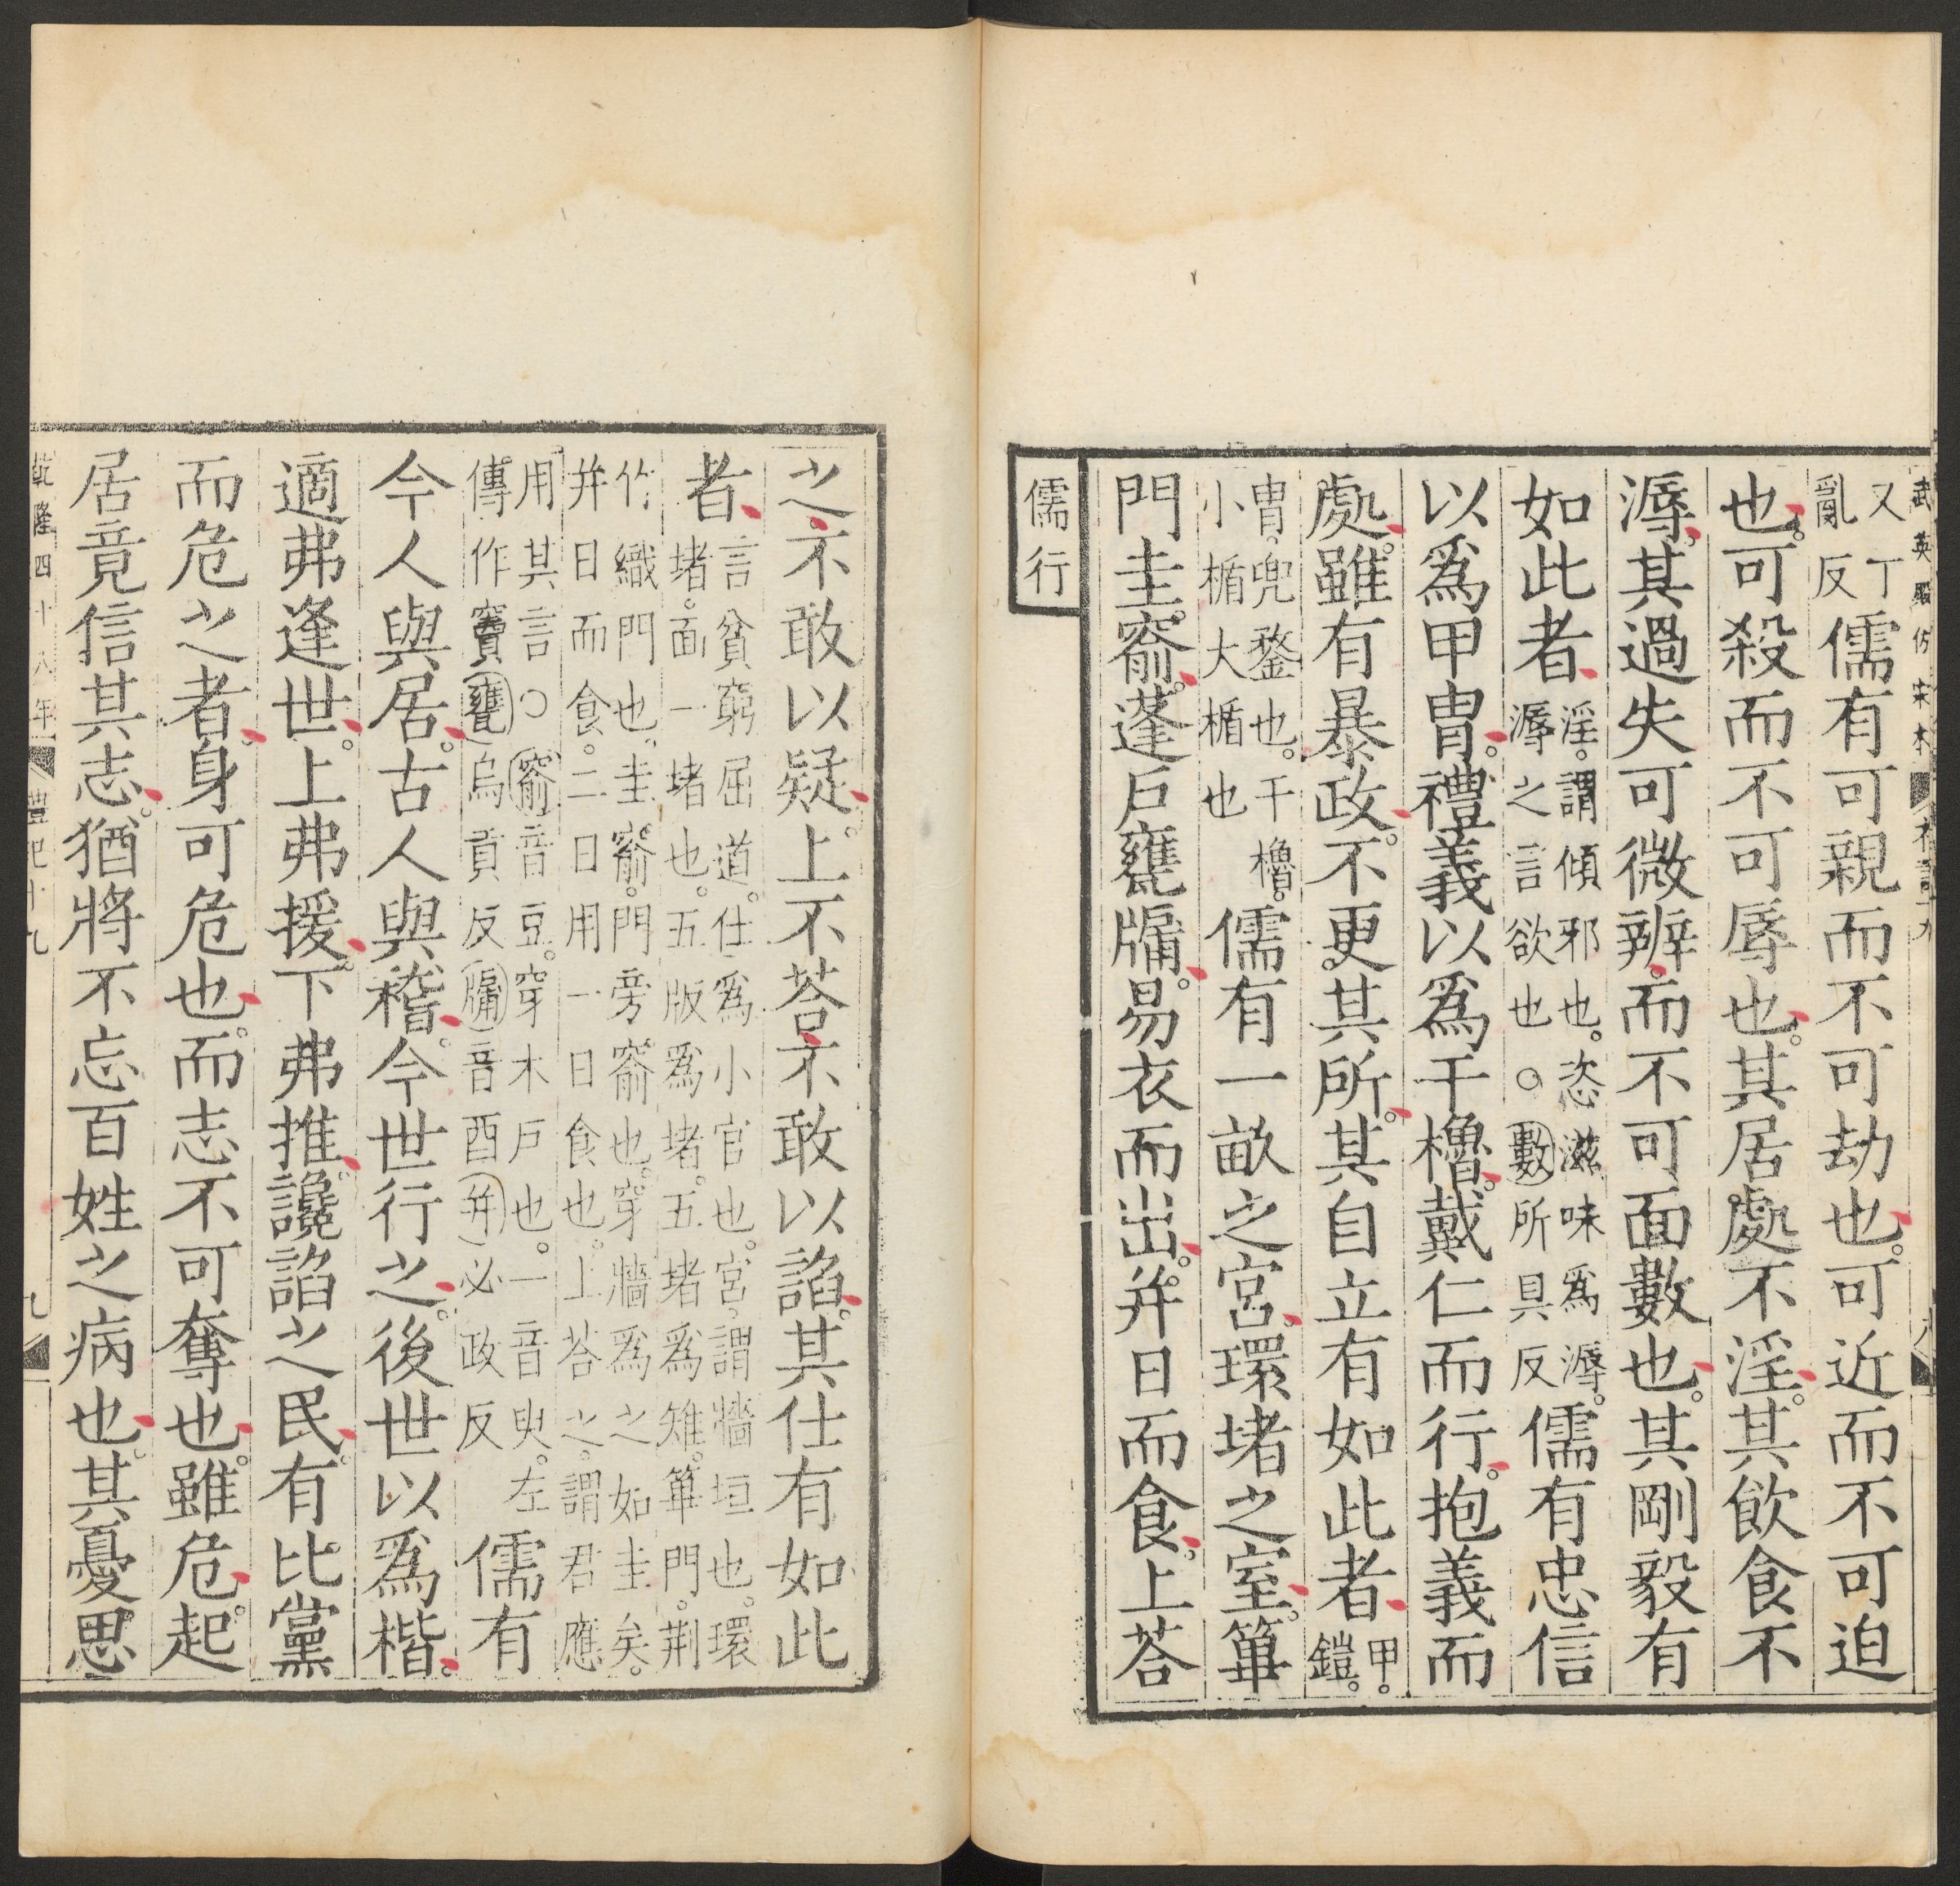 武英殿仿宋本
又丁
亂反
儒有可親而不可劫也。可近而不可迫
也。可殺而不可辱也。其居處不淫。其飲食不
溽。其過失可微辨。而不可面數也。其剛毅有
如此者
淫。謂傾邪也。恣滋味爲溽。
溽之言欲也○數所具反
儒有忠信
以爲甲冑。禮義以爲干櫓。戴仁而行。抱義而
處。雖有暴政。不更其所。其自立有如此者
甲。
鎧。
冑。兜鍪也。干櫓。
小楯大楯也
儒有一畝之宮。環堵之室。篳
門圭窬。蓬戶甕牖。易衣而出。并日而食。上荅
儒行
之。不敢以疑。上不荅。不敢以諂。其仕有如此
者
言貧窮屈道。仕爲小官也。宮。謂牆垣也。環
堵。面一堵也。五版爲堵。五堵爲雉。篳門。荆
竹織門也。圭窬。門旁窬也。穿牆爲之如圭矣。
并日而食。二日用一日食也。上荅之。謂君應
用其言○窬音豆。穿木戶也。一音臾。左
傳作竇甕烏貢反牖音酉并必政反
儒有
今人與居。古人與稽。今世行之。後世以爲楷。
適弗逢世。上弗援。下弗推。讒諂之民。有比黨
而危之者。身可危也。而志不可奪也。雖危。起
居竟信其志。猶將不忘百姓之病也。其憂思
乾隆四十八年
禮記十九
九